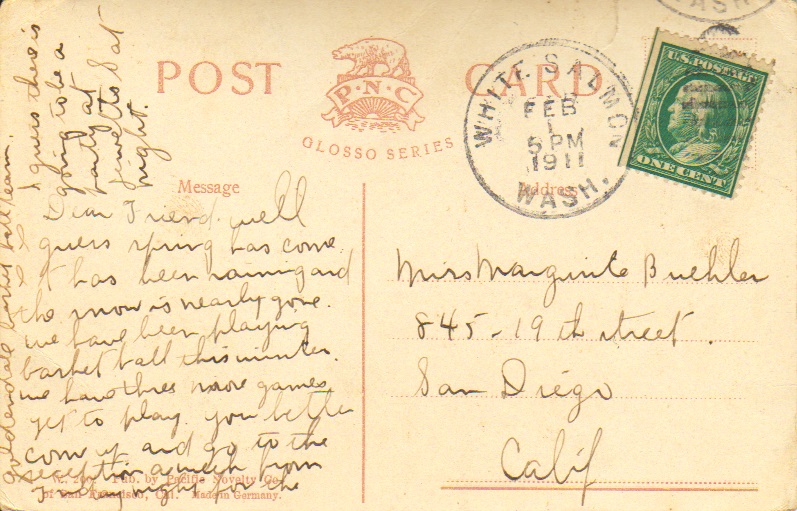 WASH.
POST CARD
P·N·C
GLOSSO SERIES
WHITE SALMON
FEB
1
5 PM
1911
WASH.
U.S. POSTAGE
ONE CENT
Message
Address
Dear Friend. well
I guess spring has come.
It has been raining and
the snow is nearly gone.
we have been playing
basket ball this winter.
we have three more games
yet to play. you better
come up and go to the
reception a week from
Friday night for the
Goldendale basket ball team.
I guess there is
going to be a
party at
Jewetts Sat
night.
Miss Marguerite Buehler
845-19th street.
San Diego
Calif
Pub. by Pacific Novelty Co.
of San Francisco, Cal. Made in Germany.